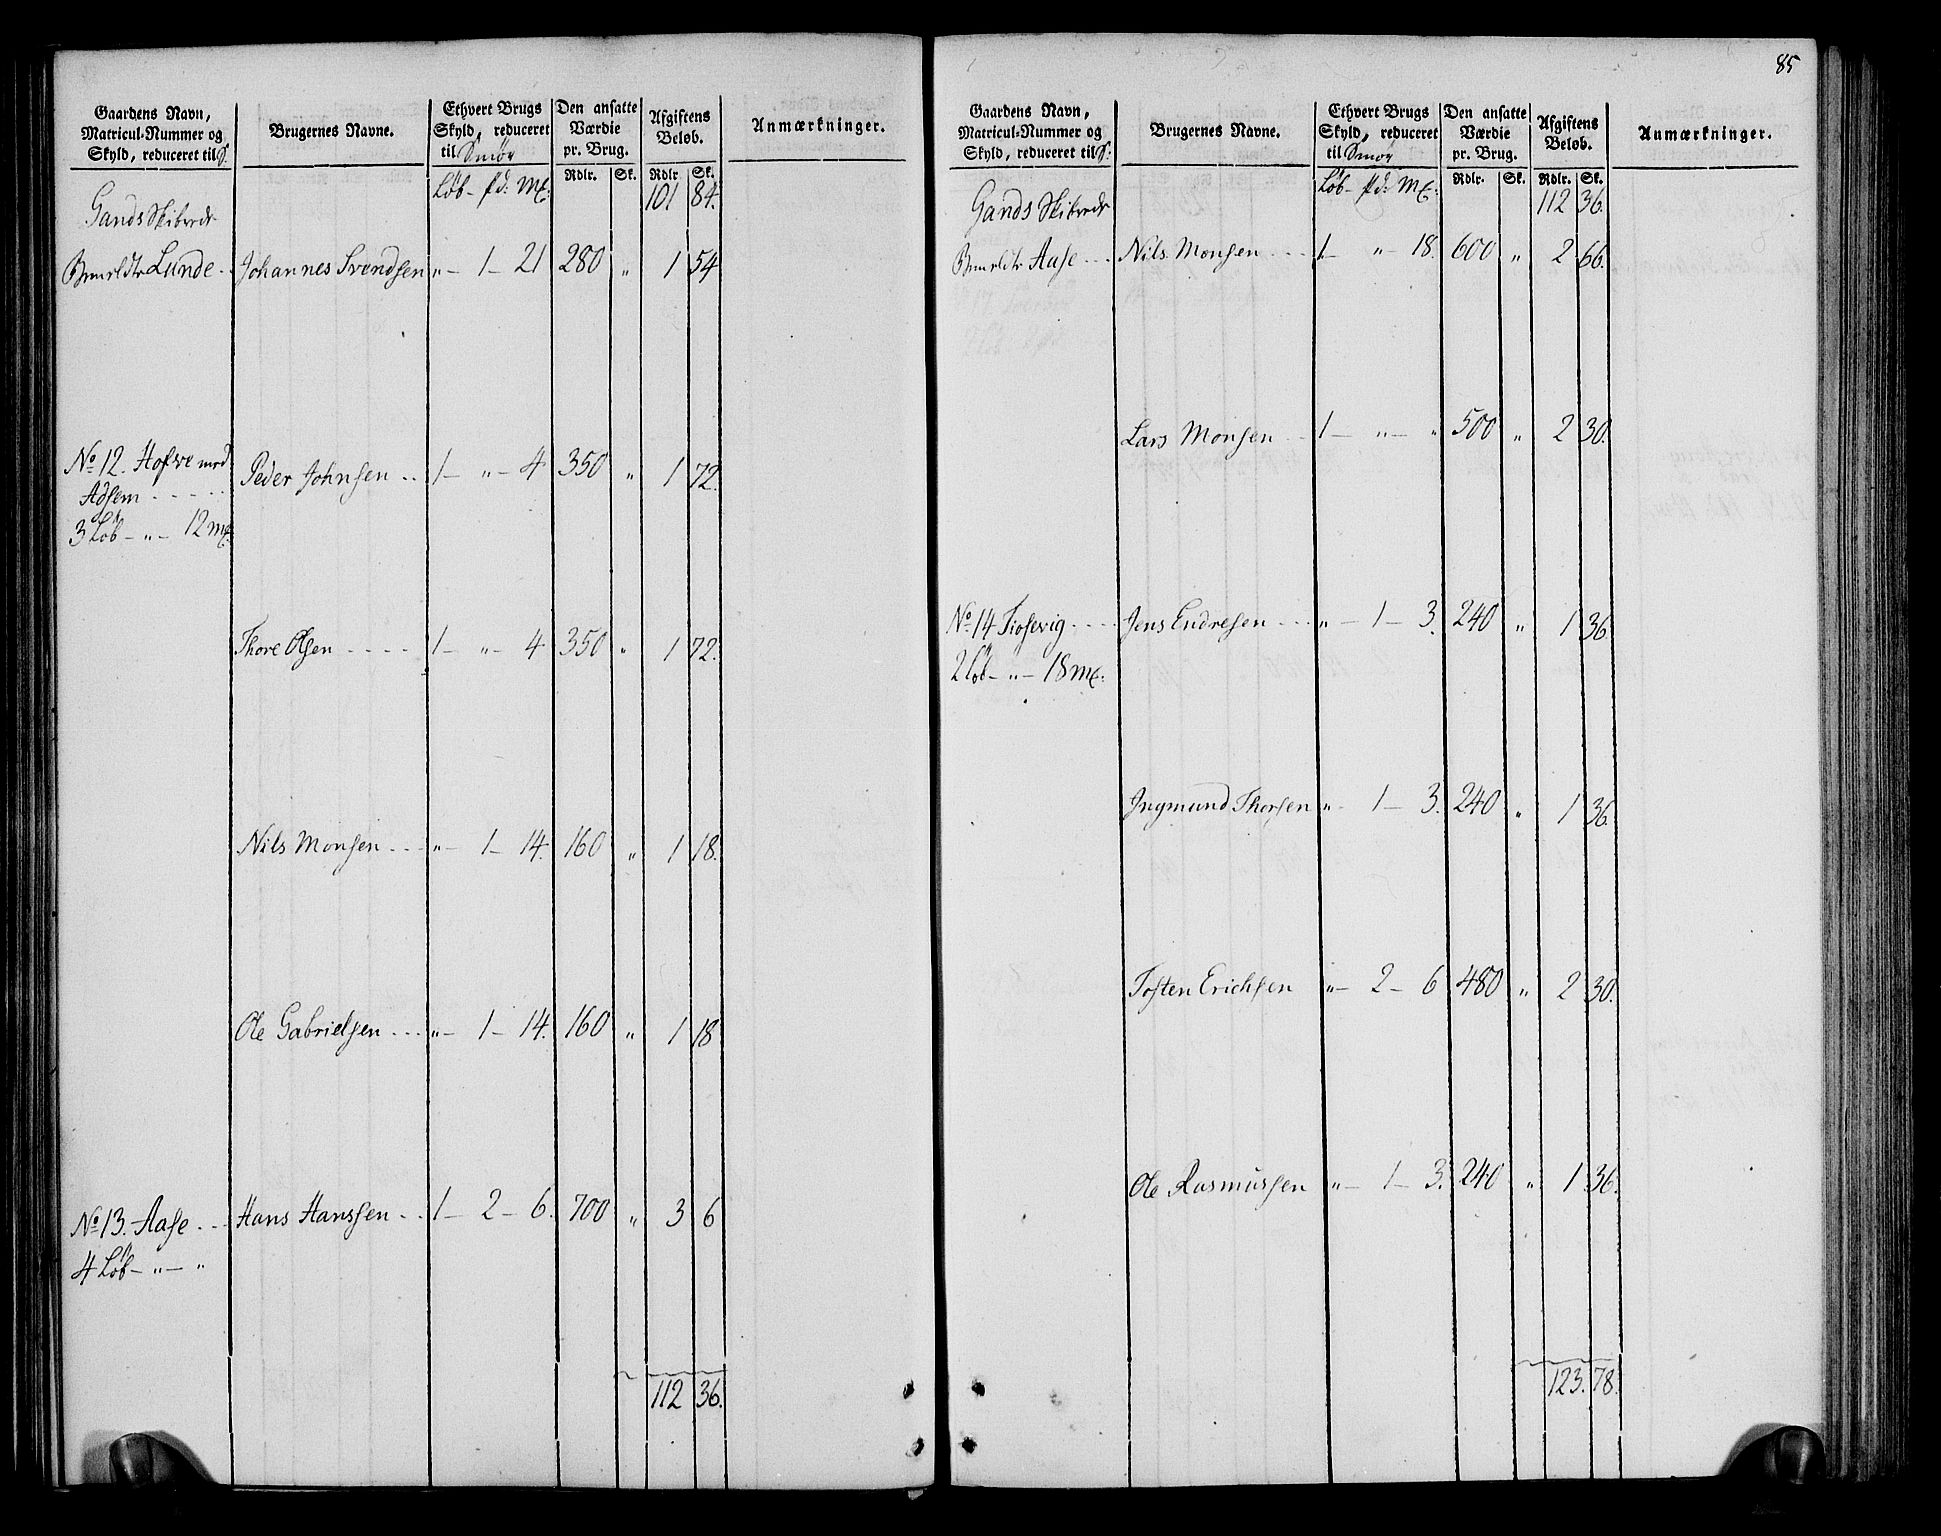 85
Gaardens Navn, Matricul-Nummer og Skyld, reduceret til S: | Brugernes Navne. | Ethvert Brugs Skyld, reduceret til Smør | Den ansatte Værdie pr. Brug. | Afgiftens Beløb. | Anmærkninger.
Løb - pd: mk: | Rdlr. | Sk. | Rdlr. | Sk.
Gands Skibrede | 101 | 84.
Lunde | Johannes Svendsen | " - 1 - 21 | 280 | " | 1 | 54
No 12. Hofve med | Peder Johnsen | 1 - " - 4 | 350 | " | 1 | 72.
Adsem
3 Løb - " - 12 mk:
Thore Olsen | 1 - " - 4 | 350 | " | 1 | 72.
Nils Monsen | " - 1 - 14. | 160 | " | 1 | 18.
Ole Gabrielsen | " - 1 - 14. | 160 | " | 1 | 18
No 13. Aase | Hans Hanssen | 1 - 2 - 6. | 700 | " | 3 | 6
4 Løb - " - "
112 | 36.
Gaardens Navn, Matricul-Nummer og Skyld, reduceret til S: | Brugernes Navne. | Ethvert Brugs Skyld, reduceret til Smør | Den ansatte Værdie pr. Brug. | Afgiftens Beløb. | Anmærkninger.
Løb - pd: mk: | Rdlr. | Sk. | Rdlr. | Sk.
Gands Skibrede | 112 | 36.
Aase | Nils Monsen | 1 - " - 18. | 600 | " | 2 | 66.
Lars Monsen | 1 - " - " | 500 | " | 2 | 30.
No 14 Tiosevig | Jens Endresen | " - 1 - 3. | 240 | " | 1 | 36
2 Løb - " - 18 mk:
Ingmund Thorsen | " - 1 - 3. | 240 | " | 1 | 36.
Tosten Erichsen | " - 2 - 6 | 480 | " | 2 | 30.
Ole Rasmussen | " - 1 - 3. | 240 | " | 1 | 36.
123. | 78.